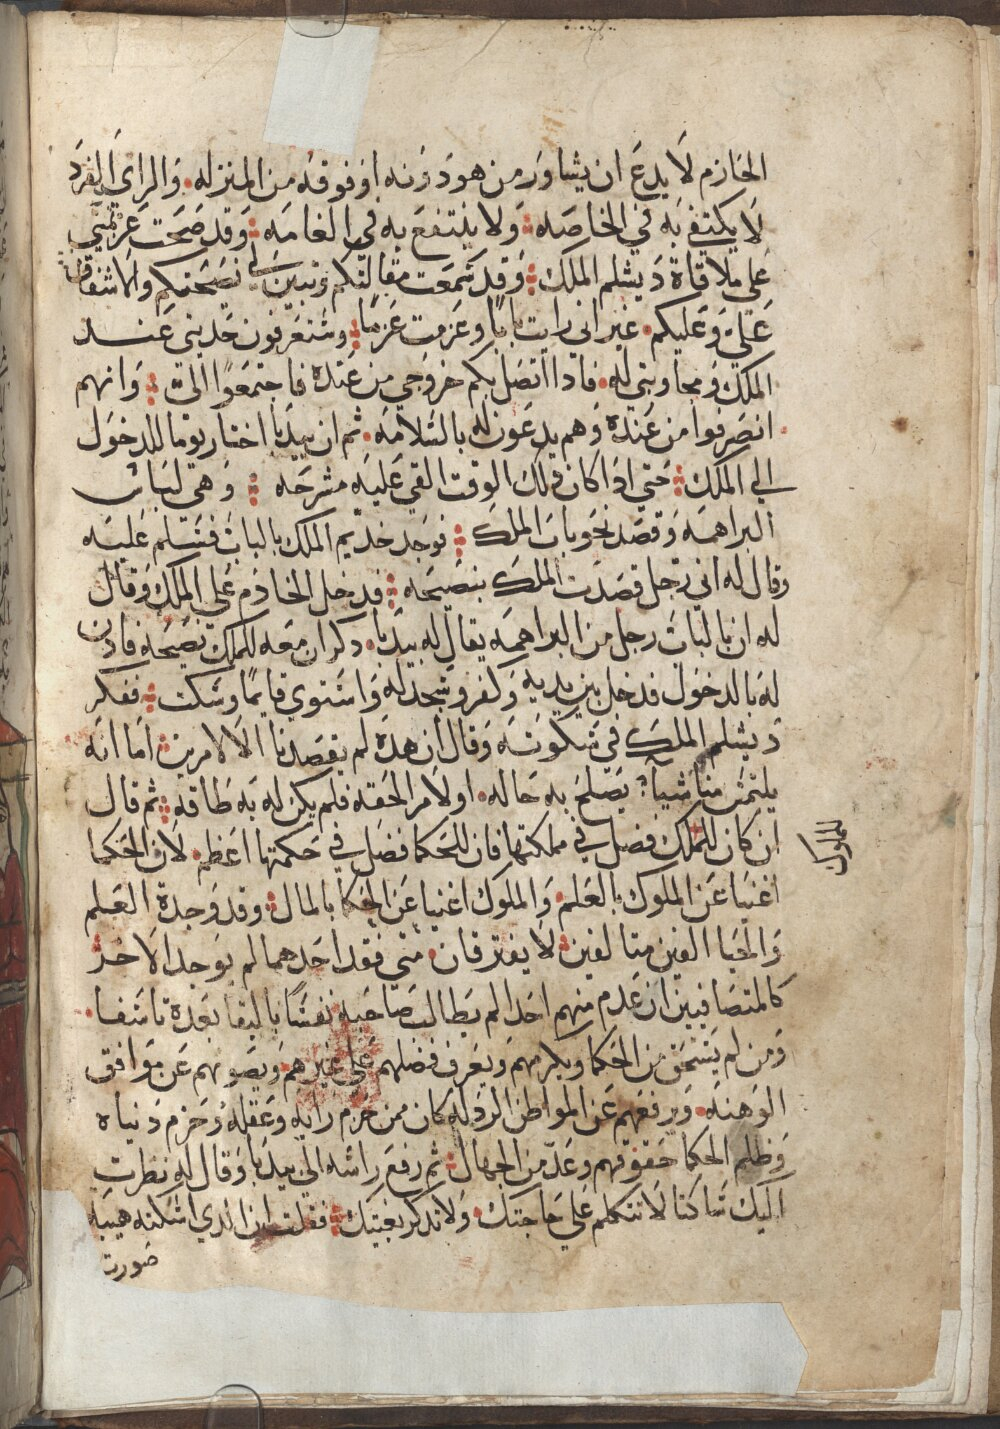 الحازم لا يدع ان يشاور من هو دونه او فوقه من المنزله. والراى الفرد
لا يكتفى به في الخاصه ولا ينتفع به في العامه وقد صحت عزيمتي
على ملاقاة دبشلم الملك وقد سمعت مقالتكم وتبين لي نصيحتكم والاشفاق
علي وعليكم. غير اني رايت رايا وعزمت عزما وستعرفون حديثي عند
الملك ومجاوبتي له. فادا اتصل بكم خروجي من عنده فاجتمعوا الي وانهم
انصرفوا من عنده وهم يدعون له بالسلامه. ثم ان بيدبا اختار يوما للدخول
الي الملك حتي ادا كان ذلك الوقت القي عليه مسرحه وهي لباس
البراهمه وقصد نحو باب الملك فوجد خديم الملك بالباب فسلم عليه
وقال له اني رجل قصدت الملك بنصيحه فدخل الخادم على الملك وقال
له ان بالباب رجل من البراهمه يقال له بيدبا. دكر ان معه للملك نصيحه فادن
له بالدخول فدخل بين يديه وكفر وسجد له واستوي قايما وسكت ففكر
دبشلم الملك في سكوته وقال ان هدا لم يقصدنا الا لامرين اما انه
يلتمس منا شيا يصلح به حاله. او لامر الحقه فلم يكن له به طاقه ثم قال
ان كان للملك فضل في مملكتها فان للحكما فضل في حكمتها اعظم. لان الحكما
للملوك
اغنيا عن الملوك بالعلم. والملوك اغنيا عن الحكما بالمال وقد وجدة العلم
والحيا الفين متالفين لا يفترقان. متي فقد احدهما لم يوجد الاخر
كالمتصافيين ان عدم منهم احد لم يطالب صاحبه نفسا بالبقا بعده تاسفا.
ومن لم يستحق من الحكما ويكرمهم ويعرف فضلهم على غيرهم ويصونهم عن مواقف
الوهنه. ويرفعهم عن المواطن الردله كان ممن حرم رايه وعقله وخرم دنياه
وظلم الحكما حقوقهم وعد من الجهال ثم رفع راسه الي بيدبا وقال له نظرت
اليك ساكتا لا تتكلم على حاجتك. ولا تدكر بغيتك فقلت ان الدي اسكته هيبه
صورت